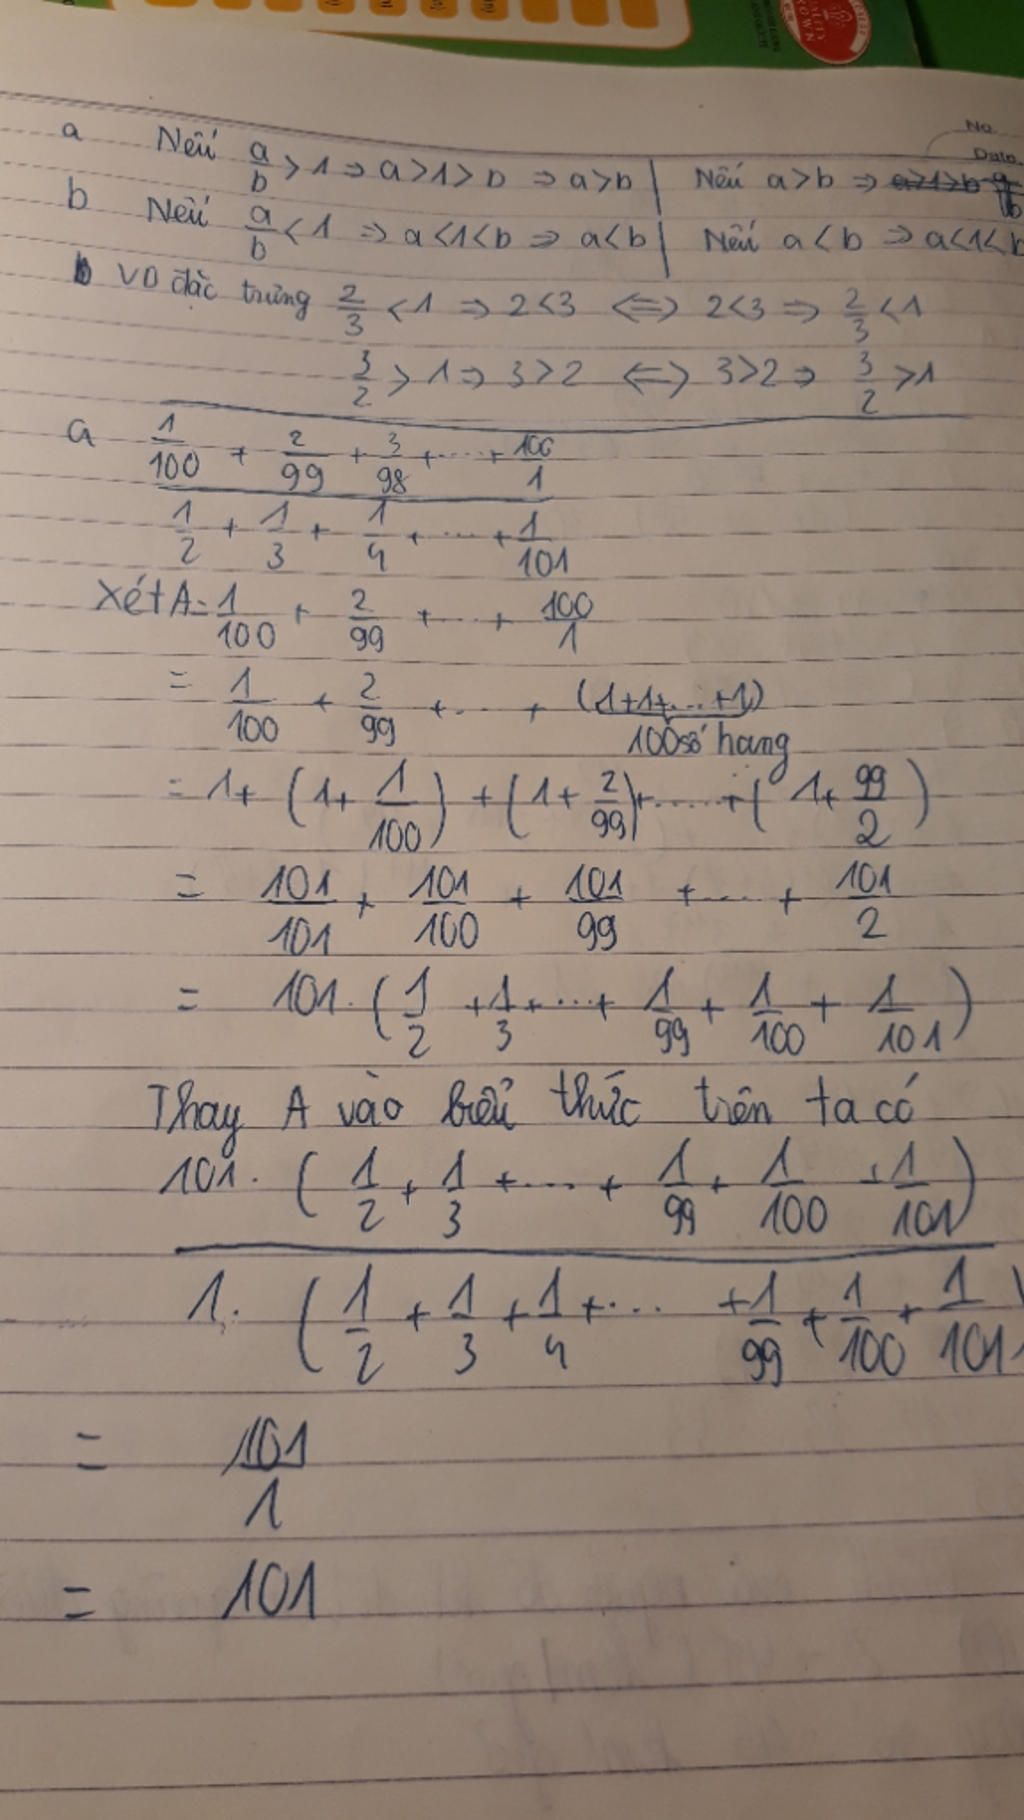 No
Date
a Nếu a/b > 1 ⇒ a > 1 > b ⇒ a > b | Nếu a > b ⇒ a > 1 > b
b Nếu a/b < 1 ⇒ a < 1 < b ⇒ a < b | Nếu a < b ⇒ a < 1 < b
b VD đặc trưng 2/3 < 1 ⇒ 2 < 3 ⇔ 2 < 3 ⇒ 2/3 < 1
3/2 > 1 ⇒ 3 > 2 ⇔ 3 > 2 ⇒ 3/2 > 1
a 1/100 + 2/99 + 3/98 + .... + 100/1
1/2 + 1/3 + 1/4 + .... + 1/101
Xét A = 1/100 + 2/99 + .... + 100/1
= 1/100 + 2/99 + .... + (1+1+...+1)
100 số hang
= 1 + (1 + 1/100) + (1 + 2/99) + ...... + (1 + 99/2)
= 101/101 + 101/100 + 101/99 + .... + 101/2
= 101. (1/2 + 1/3 + .... + 1/99 + 1/100 + 1/101)
Thay A vào biểu thức trên ta có
101. (1/2 + 1/3 + .... + 1/99 + 1/100 + 1/101)
1. (1/2 + 1/3 + 1/4 + .... + 1/99 + 1/100 + 1/101)
= 101/1
= 101